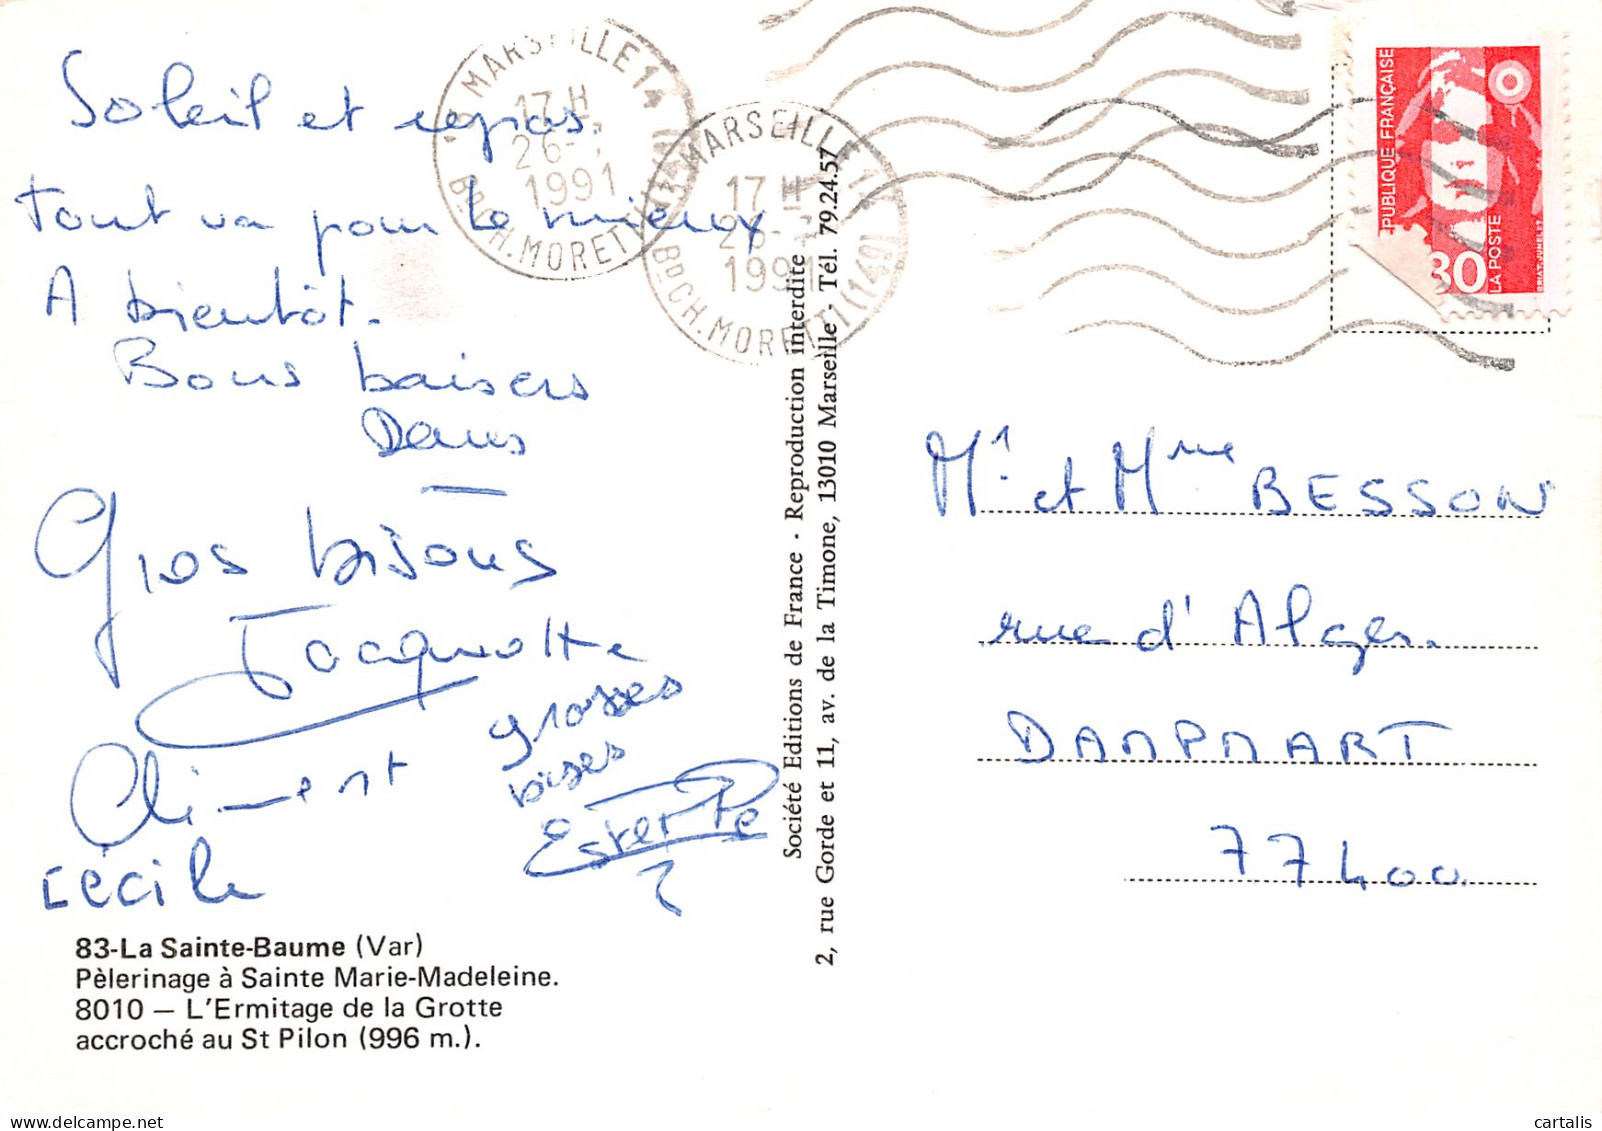 Soleil et repos,
tout va pour le mieux
A bientôt.
Bons baisers
Denis
Gros bisous
Jacquotte
Clément
grosses
bises
Cécile
83-La Sainte-Baume (Var)
Pèlerinage à Sainte Marie-Madeleine.
8010 — L'Ermitage de la Grotte
accroché au St Pilon (996 m.).
MARSEILLE 14
17 H
26-
1991
BD.CH.MORETTI
13-MARSEILLE 14
17 H
26-
1991
BD.CH.MORETTI (149)
Société Editions de France - Reproduction interdite
2, rue Gorde et 11, av. de la Timone, 13010 Marseille - Tél. 79.24.57
RÉPUBLIQUE FRANÇAISE
30
LA POSTE
BRIAT-JUMELET
Mr. et Mme BESSON
rue d'Alger.
DAMPMART
77400
cartalis